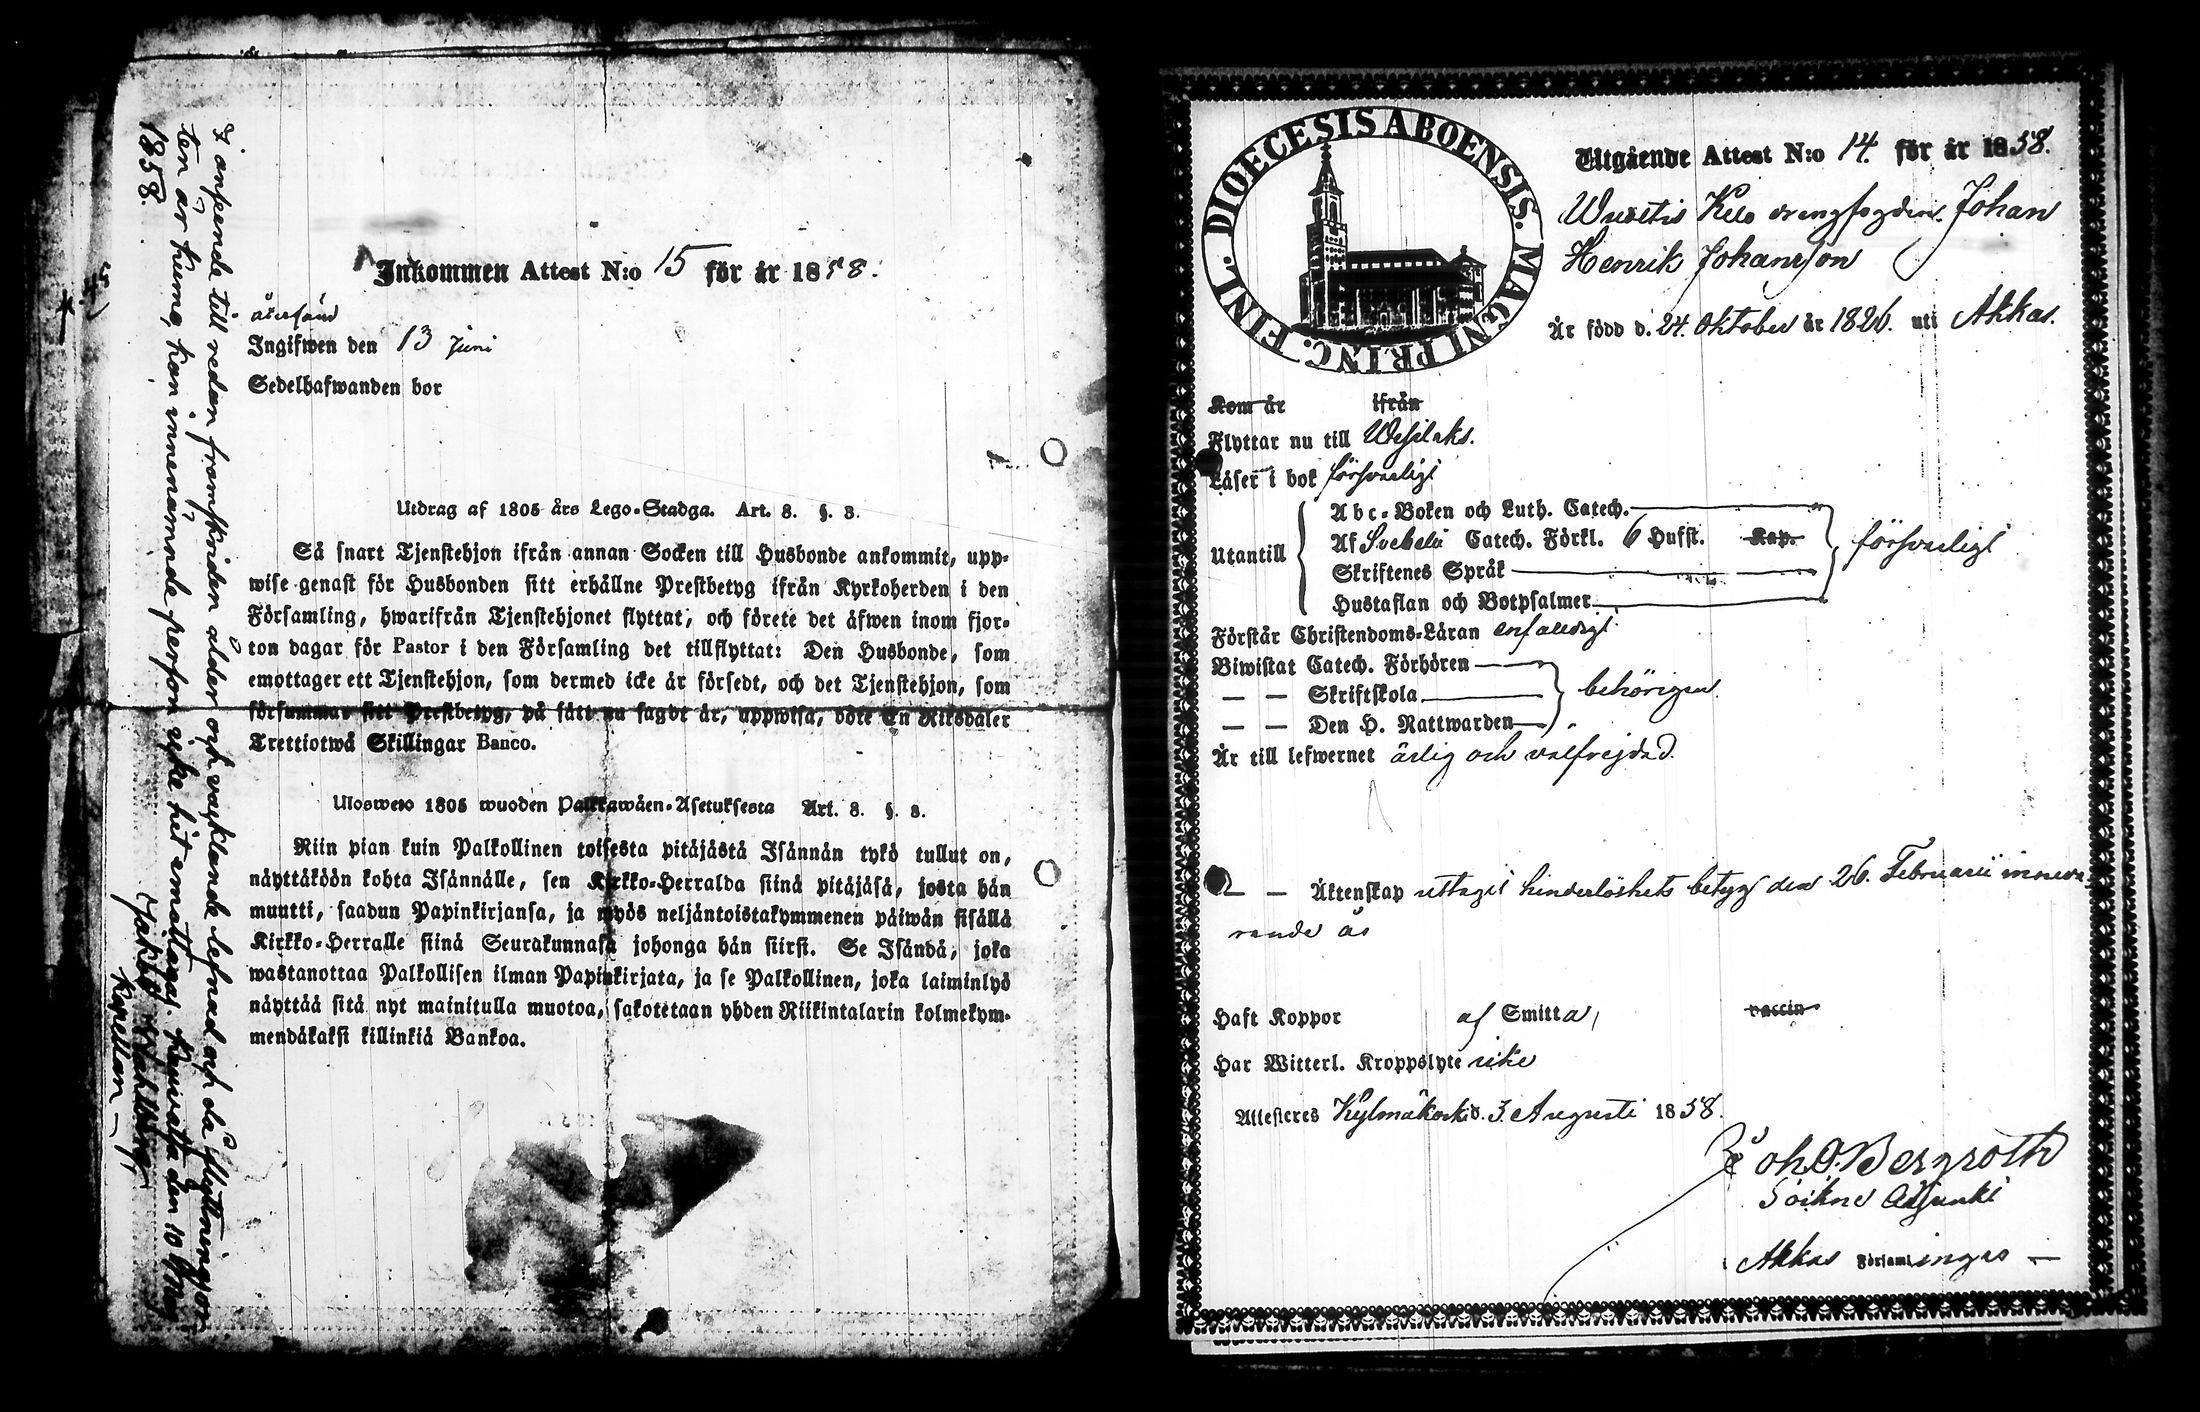 I anseende till redan framskriden ålder och vacklande lefnad och då flyttningsor
ten är
kan innenämnde person icke hit emottagas. den 10 Maj
1858.
Kapellan
Inkommen Attest N:o 15 för år 1858.
återsänd
Ingifwen den 13 Juni
Sedelhafwanden bor
Utdrag af 1805 års Lego-Stadga. Art. 8. §. 3.
Så snart Tjenstehjon ifrån annan Socken till Husbonde ankommit, upp-
wise genast för Husbonden sitt erhållne Prestbetyg ifrån Kyrkoherden i den
Församling, hwarifrån Tjenstehjonet flyttat, och förete det äfwen inom fjor-
ton dagar för Pastor i den Församling det tillflyttat: Den Husbonde, som
emottager ett Tjenstehjon, som dermed icke är försedt, och det Tjenstehjon, som
försummar sitt Prestbetyg, på sätt nu sagdt är, uppwisa, böte En Riksdaler
Trettiotwå Skillingar Banco.
Ulosweto 1805 wuoden Palkkawäen-Asetuksesta Art. 8. §. 3.
Niin pian kuin Palkollinen toisesta pitäjästä Isännän tykö tullut on,
näyttäköön kohta Isännälle, sen Kirkko-Herralda siinä pitäjäsä, josta hän
muutti, saadun Papinkirjansa, ja myös neljäntoistakymmenen päiwän sisällä
Kirkko-Herralle siinä Seurakunnasa johonga hän siirsi. Se Isändä, joka
wastanottaa Palkollisen ilman Papinkirjata, ja se Palkollinen, joka laiminlyö
näyttää sitä nyt mainitulla muotoa, sakotetaan yhden Riikintalarin kolmekym-
mendäkaksi killinkiä Bankoa.
DIOECESIS ABOENSIS. MAGNI PRINC. FINL.
Utgående Attest N:o 14. för år 1858.
drengfogden Johan
Henrik Johansson
Är född d. 24. Oktober år 1826. uti Akkas.
Kom år ifrån
Flyttar nu till Wesilaks.
Läser i bok försvarligt
Utantill
Abc-Boken och Luth. Catech.
Af Svebelii Catech. Förkl. 6 Hufst. Kap.
Skriftenes Språk
Hustaflan och Botpsalmer
försvarligt
Förstår Christendoms-Läran enfaldigt
Biwistat Catech. Förhören
— — Skriftskola
— — Den H. Nattwarden
behörigen
Är till lefwernet ärlig och välfrejdad.
— — Äktenskap uttagit hinderlöshets betyg den 26. Februarii inneva
rande år
Haft Koppor af Smitta, vaccin
Har Witterl. Kroppslyte icke
Attesteres Kylmäkoski d. 3 Augusti 1858.
Joh. O. Bergroth
Sockne Adjunkt
i Akkas Församlingar —